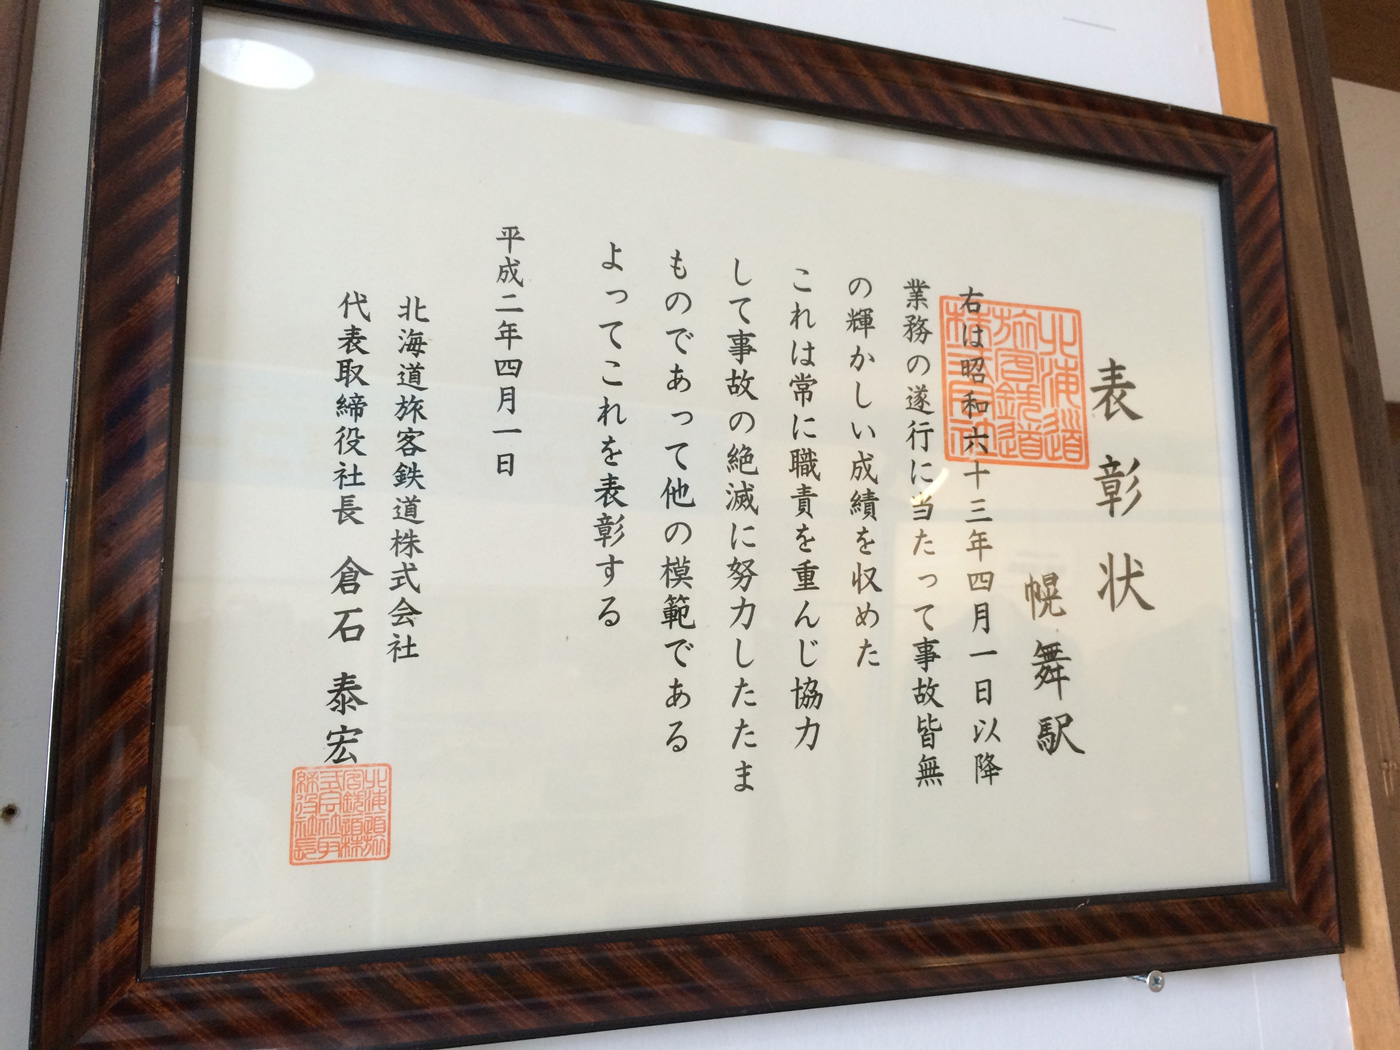 表彰状
幌舞駅
右は昭和六十三年四月一日以降
業務の遂行に当たって事故皆無
の輝かしい成績を収めた
これは常に職責を重んじ協力
して事故の絶滅に努力したたま
ものであって他の模範である
よってこれを表彰する
平成二年四月一日
北海道旅客鉄道株式会社
代表取締役社長 倉石泰宏
北海道
旅客鉄道
株式会社
北海道旅
客鉄道株
式会社取
締役社長